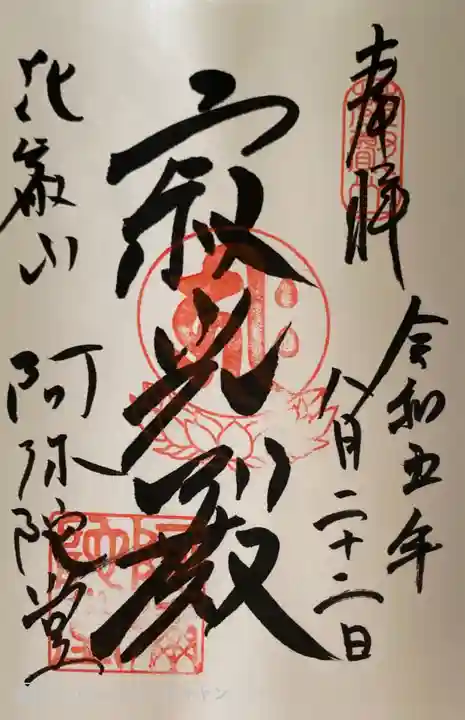 奉拝
令和五年
八月二十二日
寂光
花厳山 阿弥陀堂